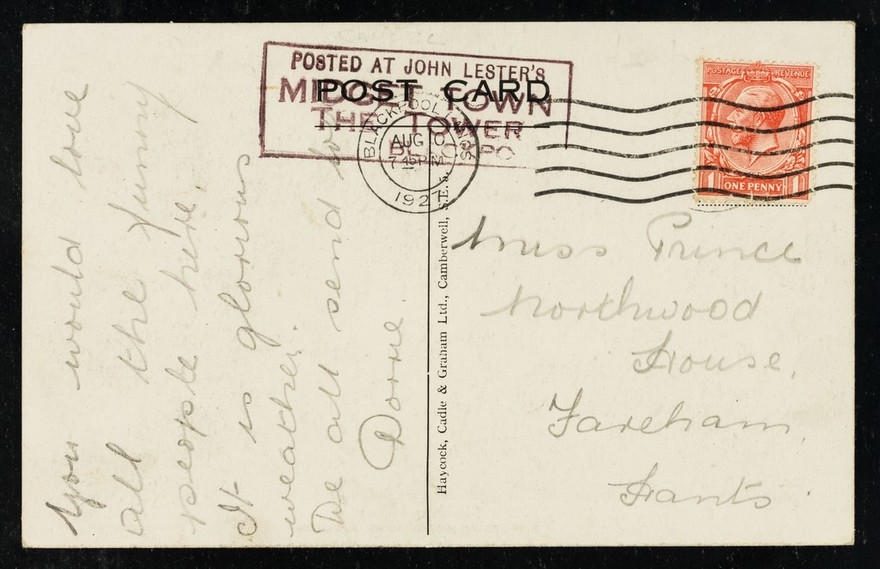 POSTED AT JOHN LESTER'S
MIDGET TOWN
THE TOWER
POST CARD
BLACKPOOL
AUG 10
7.45 PM
1927
POSTAGE REVENUE
1 ONE PENNY 1
You would love
all the funny
people here.
It is glorious
weather.
We all send
Dorrie.
Haycock, Cadle & Graham Ltd., Camberwell, S.E.5.
Miss Prince
Northwood
House,
Fareham,
Hants